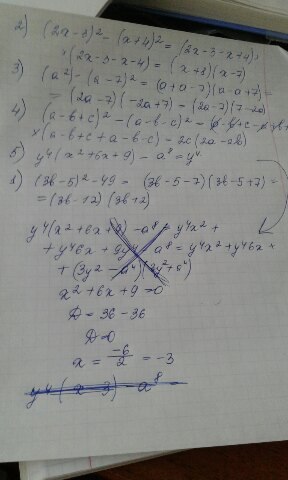 2) (2x-3)² - (x+4)² = (2x-3-x+4)·
×(2x-3-x-4) = (x+3)(x-7)
3) (a²) - (a-7)² = (a+a-7)(a-a+7) =
= (2a-7)(-2a+7) = (2a-7)(7-2a)
4) (a-b+c)² - (a-b-c)² =
×(a-b+c+a-b-c) = 2c(2a-2b)
5) y⁴(x²+6x+9) - a⁸ = y⁴
1) (3b-5)² - 49 = (3b-5-7)(3b-5+7) =
= (3b-12)(3b+2)
y⁴(x²+6x+9) - a⁸ = y⁴x² +
+ y⁴6x + 9y⁴ - a⁸ = y⁴x² + y⁴6x +
+ (3y² - a⁴)(3y² + a⁴)
x² + 6x + 9 = 0
D = 36 - 36
D = 0
x = -6/2 = -3
y⁴(x-3) - a⁸ =